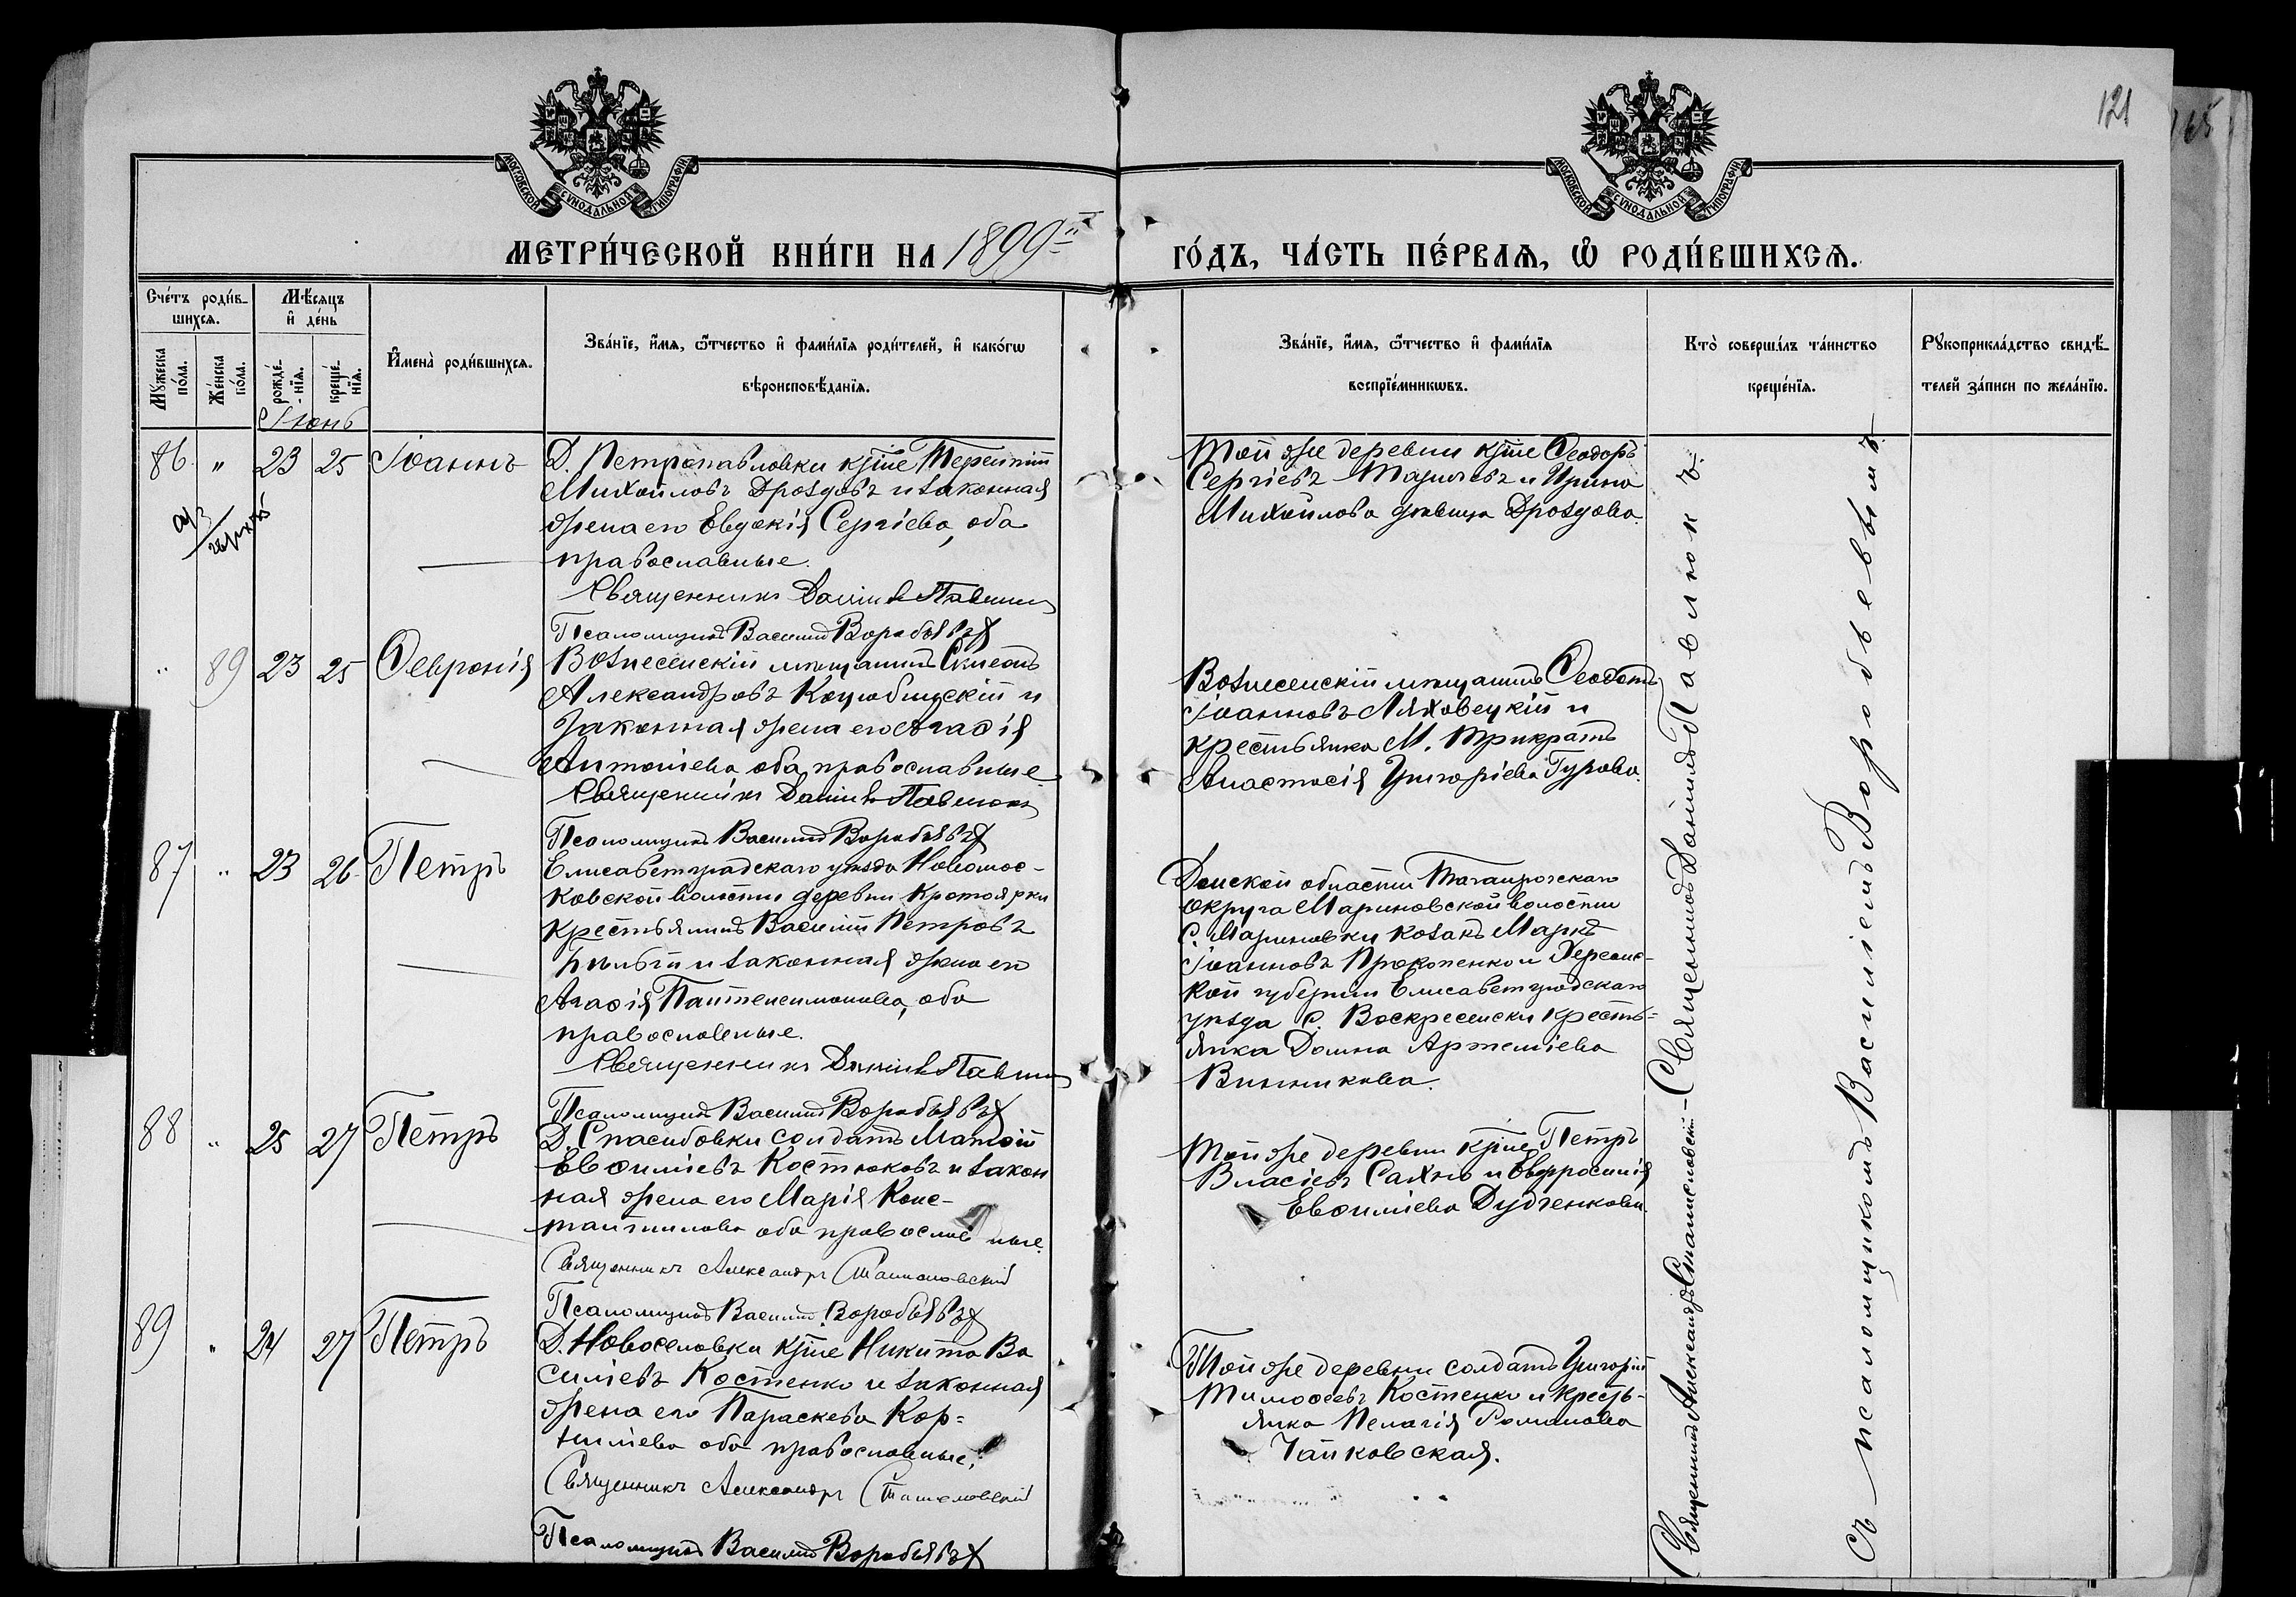 121
МОСКОВСКОЙ СѴНОДАЛЬНОЙ ТИПОГРАФІИ
МОСКОВСКОЙ СѴНОДАЛЬНОЙ ТИПОГРАФІИ
МЕТРИ́ЧЕСКОЙ КНИ́ГИ НА 1899й
ГО́ДЪ, ЧА́СТЬ ПЕ́РВАѦ, Ѡ РОДИ́ВШИХСѦ.
Сче́тъ роди́в-
шихсѧ.
Мѣ́сѧцъ
и де́нь
Мꙋжеска по́ла.
Же́нска по́ла.
рожде́-нїѧ.
креще́-нїѧ.
И҆мена̀ роди́вшихсѧ.
Зва́нїе, и҆́мѧ, ѻ҆́тчество и҆ фами́лїѧ роди́телей, и҆ како́гѡ
вѣроисповѣ́данїѧ.
Зва́нїе, и҆́мѧ, ѻ҆́тчество и҆ фами́лїѧ
воспрїе́мникѡвъ.
Кто̀ соверша́лъ та́инство
креще́нїѧ.
Рꙋкоприкла́дство свидѣ́-
телей за́писи по жела́нїю.
Іюнь
86 " 23 25 Іоаннъ
Д. Петропавловки крѣне Терентій
Михайловъ Дроздовъ и законная
жена его Евдокія Сергіева, оба
православные.
Священникъ Даніилъ Павлюкъ
Псаломщикъ Василій Воробьевъ
Той же деревни крѣне Ѳеодоръ
Сергіевъ и Ирина
Михайлова девица Дроздова.
" 89 23 25 Февронія
Вознесенскій мѣщанинъ Симеонъ
Александровъ Коцюбинскій и
законная жена его Агаѳія
Антоніева, оба православные
Священникъ Даніилъ Павлюкъ
Псаломщикъ Василій Воробьевъ
Вознесенскій мѣщанинъ Ѳеодотъ
Іоанновъ Ляховецкій и
крестьянка М. Трикратъ
Анастасія Григоріева Гурова.
87 " 23 26 Петръ
Елисаветградскаго уѣзда Новомос-
ковской волости деревни Кротоярки
крестьянинъ Василій Петровъ
и законная жена его
Агаѳія Пантелеимонова, оба
православные.
Священникъ Даніилъ Павлюкъ
Псаломщикъ Василій Воробьевъ
Донской области Таганрогскаго
округа Мариновской волости
с. Мариновки козакъ Маркъ
Іоанновъ Прокопенко и Херсонс-
кой губерніи Елисаветградскаго
уѣзда с. Воскресенски кресть-
янка Домна Артеміева
Винникова.
88 " 25 27 Петръ
Д. Спасибовки солдатъ Матѳій
Евѳиміевъ Костюковъ и закон
ная жена его Марія Конс-
тантинова оба православные.
Священникъ Александръ Станиславскій
Псаломщикъ Василій Воробьевъ
Той же деревни крѣне Петръ
Власіевъ Сахно и Евфросинія
Евѳиміева Дудченкова.
89 " 24 27 Петръ
Д. Новоселовки крѣне Никита Ва
силіевъ Костенко и законная
жена его Параскева Кор-
ниліева оба православные.
Священникъ Александръ Станиславскій
Псаломщикъ Василій Воробьевъ
Той же деревни солдатъ Григорій
Тимоѳеевъ Костенко и кресть-
янка Пелагія Романова
Чайковская.
Священникъ Александръ Станиславскій - Священникъ Даніилъ Павлюкъ.
съ псаломщикомъ Василіемъ Воробьевымъ.